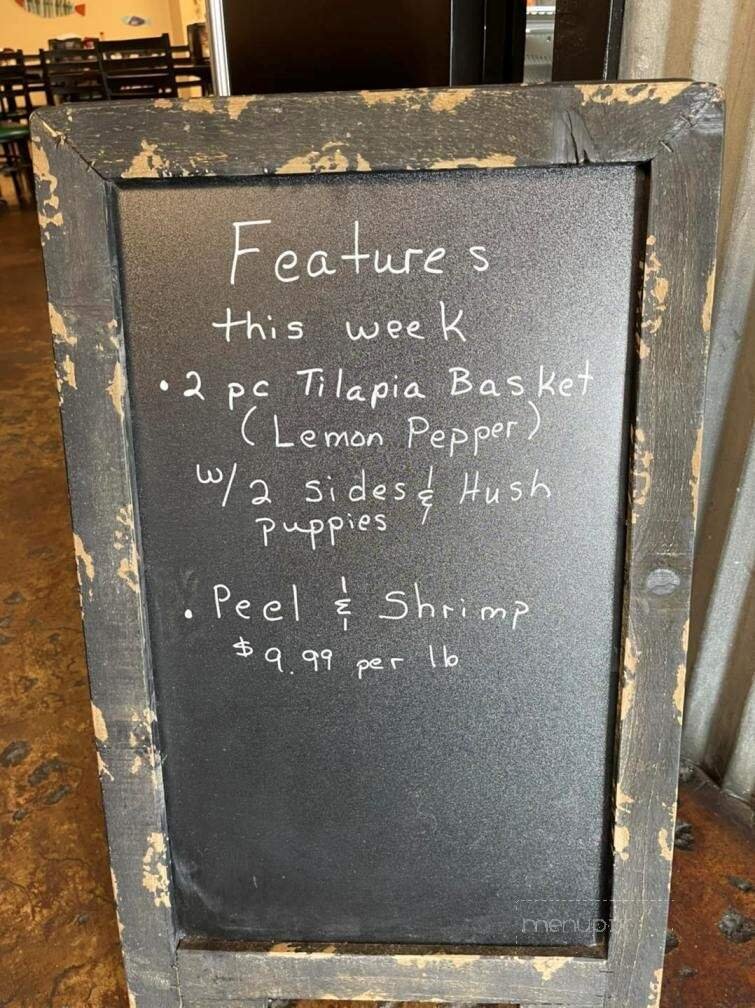 Features
this week
• 2 pc Tilapia Basket
(Lemon Pepper)
w/2 sides & Hush
puppies
• Peel & Shrimp
$9.99 per lb